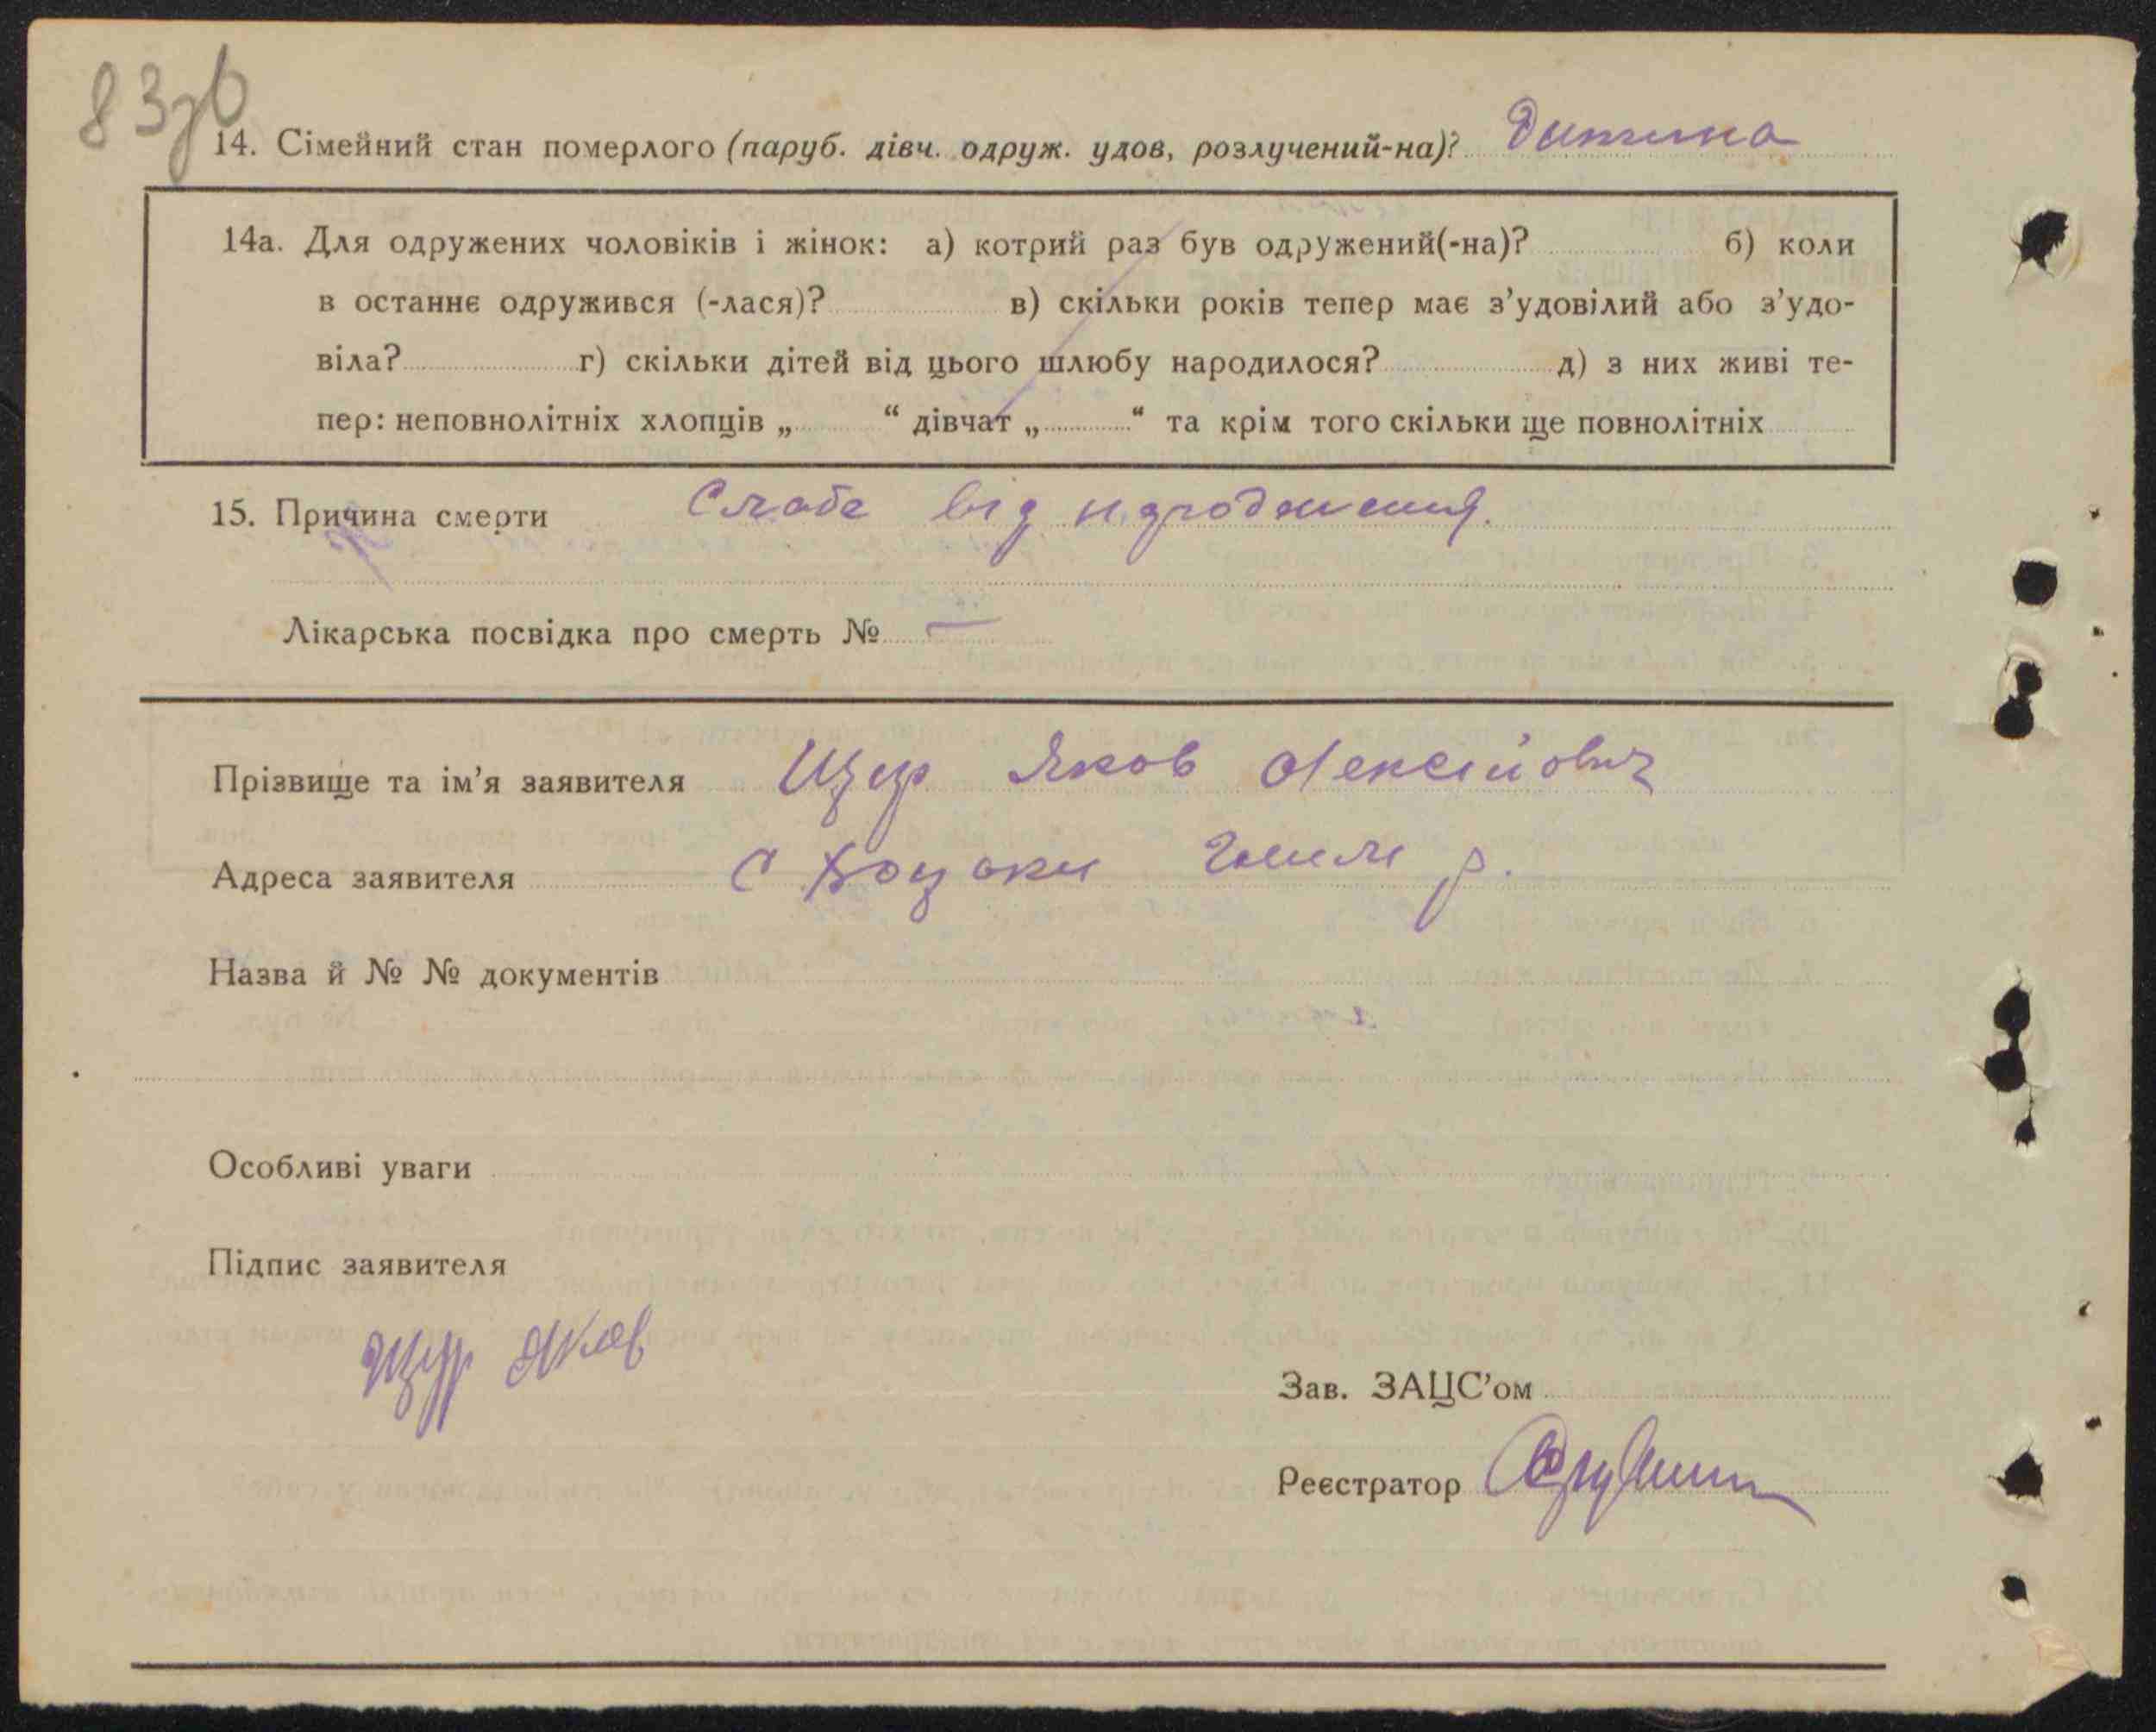 83зв
14. Сімейний стан померлого (паруб. дівч. одруж. удов, розлучений-на)? Дитина
14а. Для одружених чоловіків і жінок: а) котрий раз був одружений(-на)? б) коли
в останнє одружився (-лася)? в) скільки років тепер має з’удовілий або з’удо-
віла? г) скільки дітей від цього шлюбу народилося? д) з них живі те-
пер: неповнолітніх хлопців „ “ дівчат „ “ та крім того скільки ще повнолітніх
15. Причина смерти Слабе від народження.
Лікарська посвідка про смерть № —
Прізвище та ім’я заявителя Щур Яков Олексійович
Адреса заявителя С р.
Назва й № № документів
Особливі уваги
Підпис заявителя
Щур Яков
Зав. ЗАЦС’ом
Реєстратор